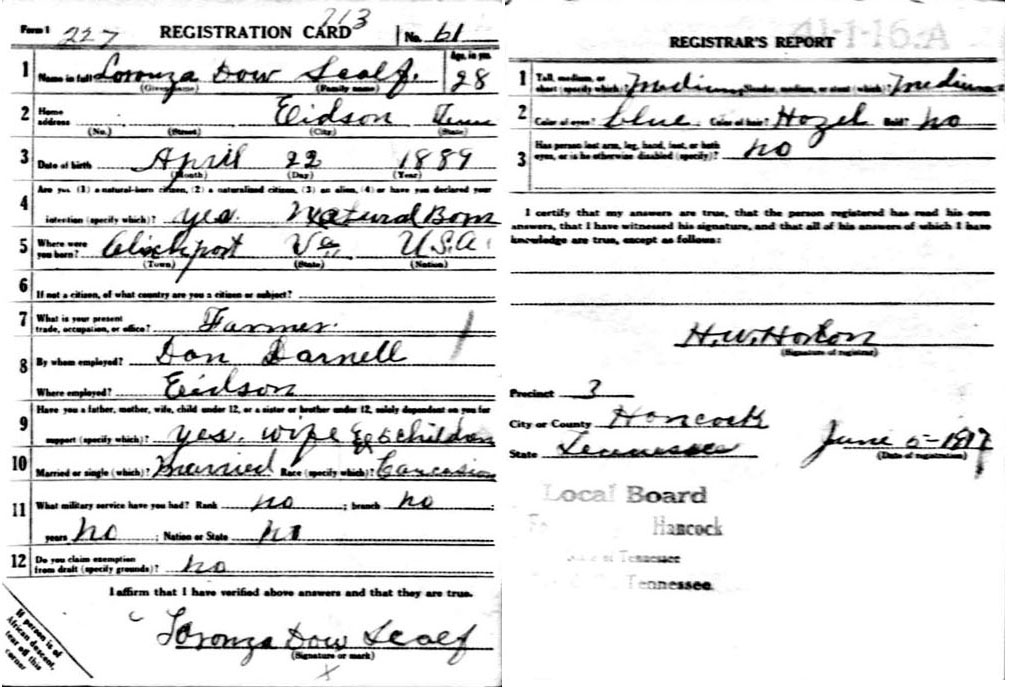 Form 1 227 REGISTRATION CARD 213 No. 61
1 Name in full Loronza Dow Scalf. Age, in yrs. 28
(Given name) (Family name)
2 Home address Eidson Tenn
(No.) (Street) (City) (State)
3 Date of birth April 22 1889
(Month) (Day) (Year)
Are you (1) a natural-born citizen, (2) a naturalized citizen, (3) an alien, (4) or have you declared your
4 intention (specify which)? yes. Natural Born
5 Where were you born? Clinchport Va U.S.A.
(Town) (State) (Nation)
6 If not a citizen, of what country are you a citizen or subject?
7 What is your present trade, occupation, or office? Farmer.
8 By whom employed? Dan Darnell
Where employed? Eidson
9 Have you a father, mother, wife, child under 12, or a sister or brother under 12, solely dependent on you for
support (specify which)? yes. wife children
10 Married or single (which)? Married Race (specify which)? Caucasion
11 What military service have you had? Rank no ; branch no ;
years no ; Nation or State no
12 Do you claim exemption from draft (specify grounds)? no
I affirm that I have verified above answers and that they are true.
Loronza Dow Scalf
(Signature or mark)
If person is of
African descent,
tear off this
corner
41-1-16-A
REGISTRAR'S REPORT
1 Tall, medium, or short (specify which)? Medium Slender, medium, or stout (which)? Medium
2 Color of eyes? blue. Color of hair? Hazel Bald? no
3 Has person lost arm, leg, hand, foot, or both eyes, or is he otherwise disabled (specify)? no
I certify that my answers are true, that the person registered has read his own
answers, that I have witnessed his signature, and that all of his answers of which I have
knowledge are true, except as follows:
H.W. Horton
(Signature of registrar)
Precinct 3
City or County Hancock
State Tennessee June 5-1917
(Date of registration)
Local Board
Hancock
of Tennessee
Tennessee.